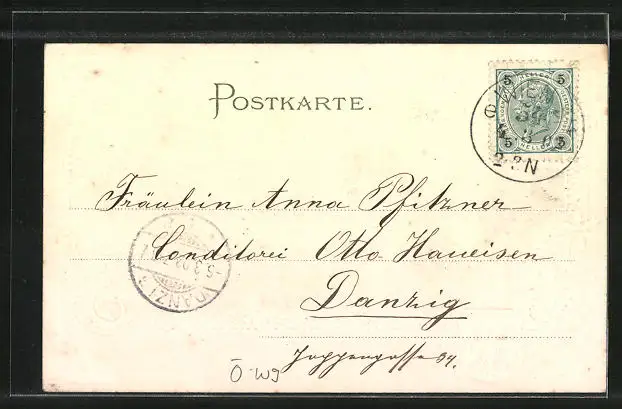 POSTKARTE.
5 HELLER 5
5 HELLER 5
WIEN
2-3N
Fräulein Anna Pfitzner
Conditorei Otto Haueisen
Danzig
Joppengasse 34.
DANZIG
5.3.02
Ö-W9